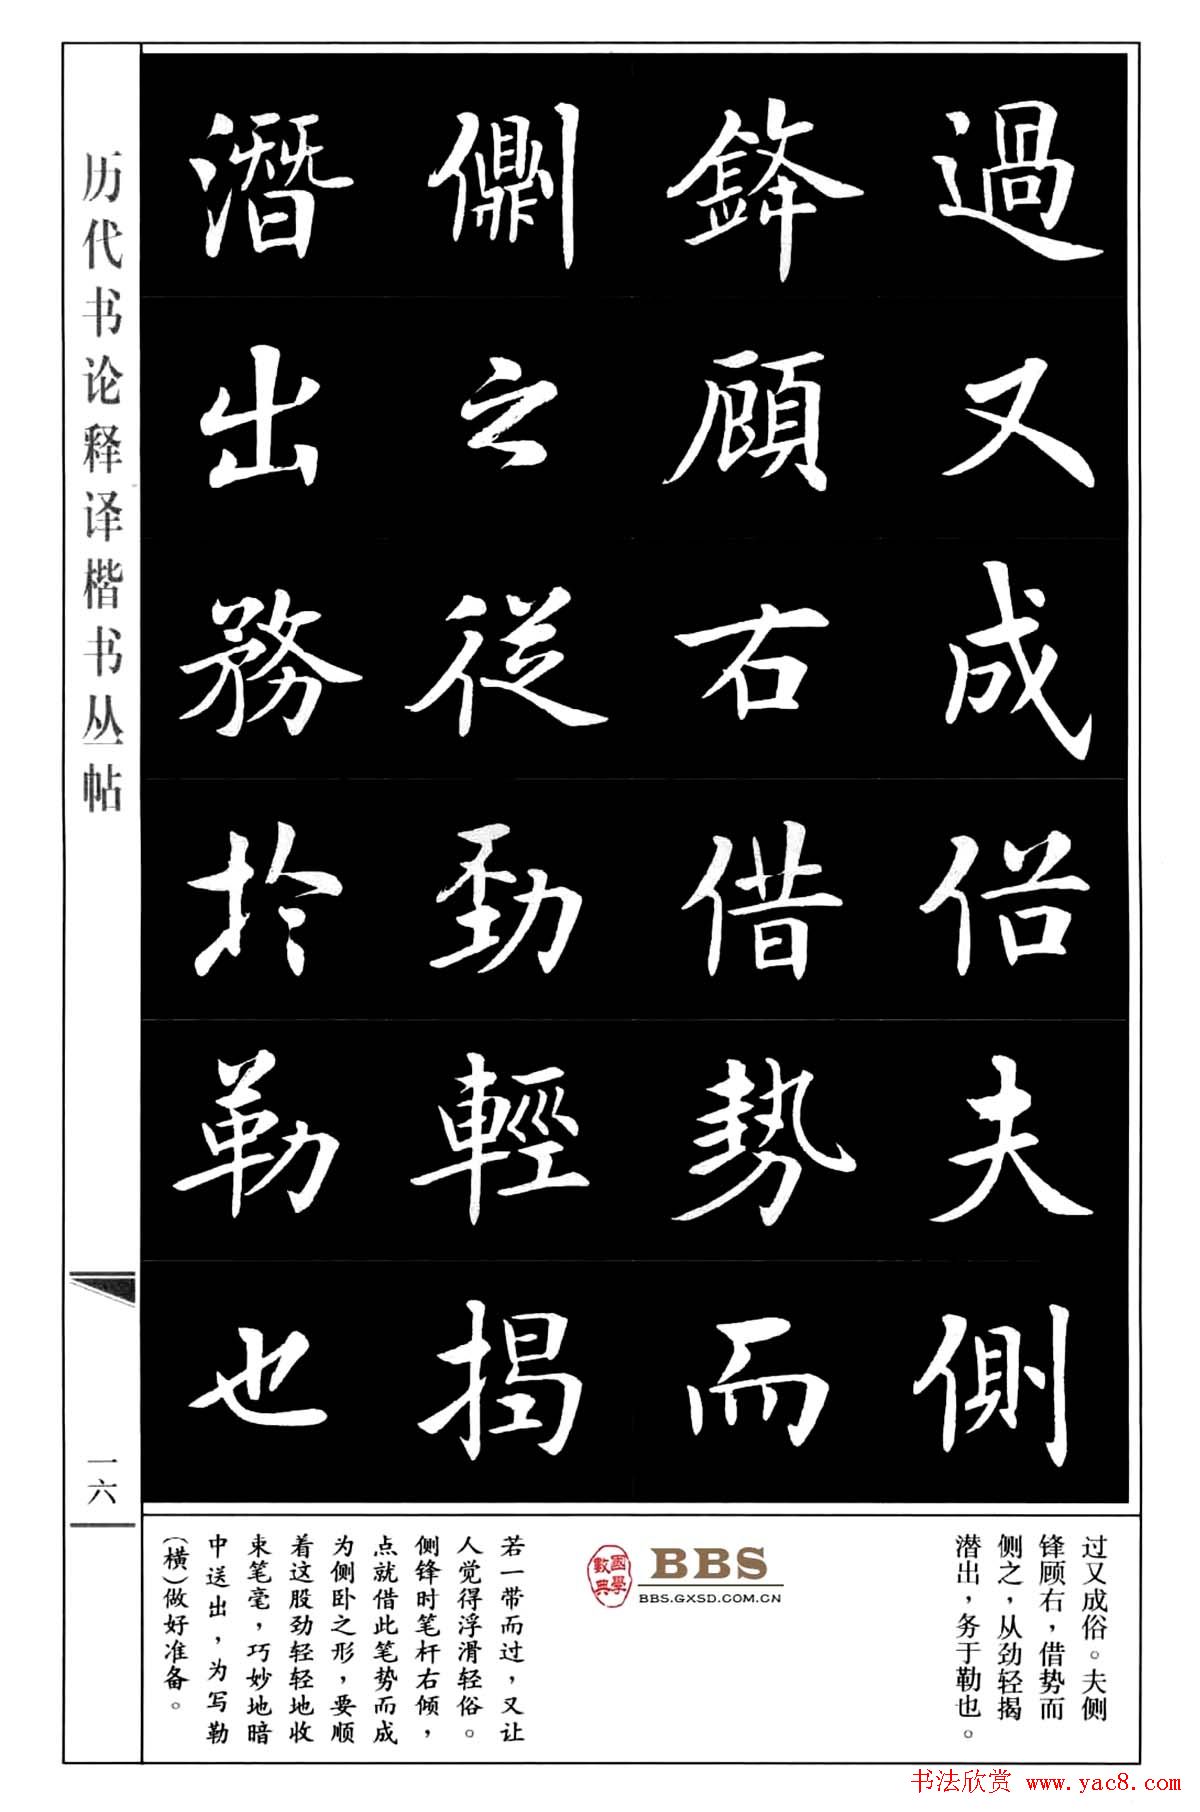 历代书论释译楷书丛帖
一六
過又成俗夫側
鋒顧右借勢而
側之從勁輕揭
潛出務於勒也
过又成俗。夫侧
锋顾右，借势而
侧之，从劲轻揭
潜出，务于勒也。
國學
數典
BBS
BBS.GXSD.COM.CN
若一带而过，又让
人觉得浮滑轻俗。
侧锋时笔杆右倾，
点就借此笔势而成
为侧卧之形，要顺
着这股劲轻轻地收
束笔毫，巧妙地暗
中送出，为写勒
（横）做好准备。
书法欣赏 www.yac8.com